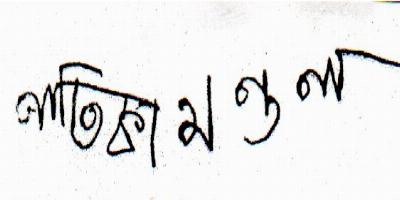 লতিকা মণ্ডল